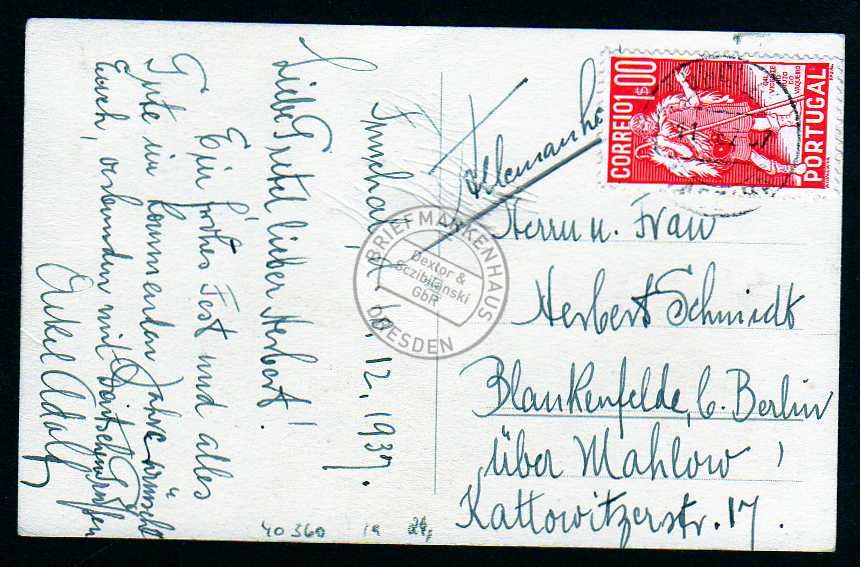 Funchal, d. 10.12.1937.
Liebe Gretel lieber Herbert!
Ein frohes Fest und alles
Gute im kommenden Jahre wünscht
Euch, verbunden mit Deutschem Grüßen
Onkel Adolf
Allemanha
CORREIO 1$00
GIL VICENTE
AUTO DO VAQUEIRO
PORTUGAL
Herrn u. Frau
Herbert Schmidt
Blankenfelde, b. Berlin
über Mahlow
Kattowitzerstr. 17.
BRIEFMARKENHAUS
Dextor &
Sczibilanski
GbR
DRESDEN
40360 19